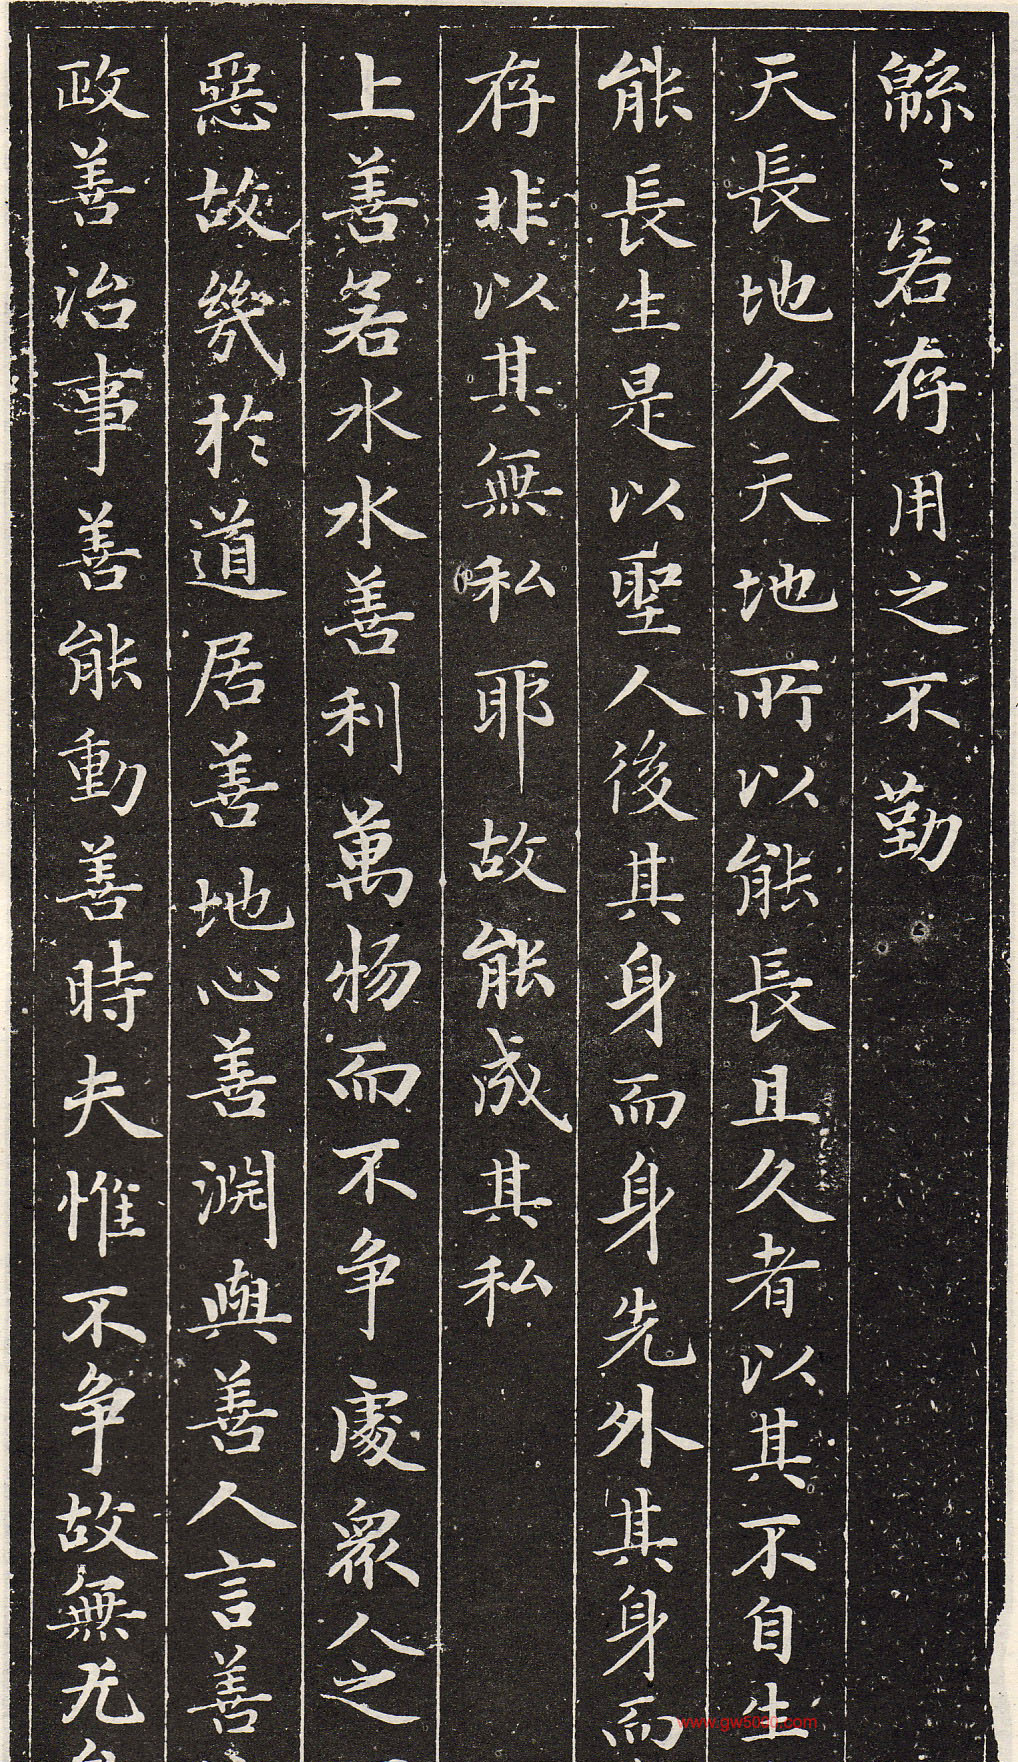 緜〻若存用之不勤
天長地久天地所以能長且久者以其不自生
能長生是以聖人後其身而身先外其身而
存非以其無私耶故能成其私
上善若水水善利萬物而不争處衆人之
惡故幾於道居善地心善淵與善人言善
政善治事善能動善時夫惟不争故無尤
www.gw5000.com